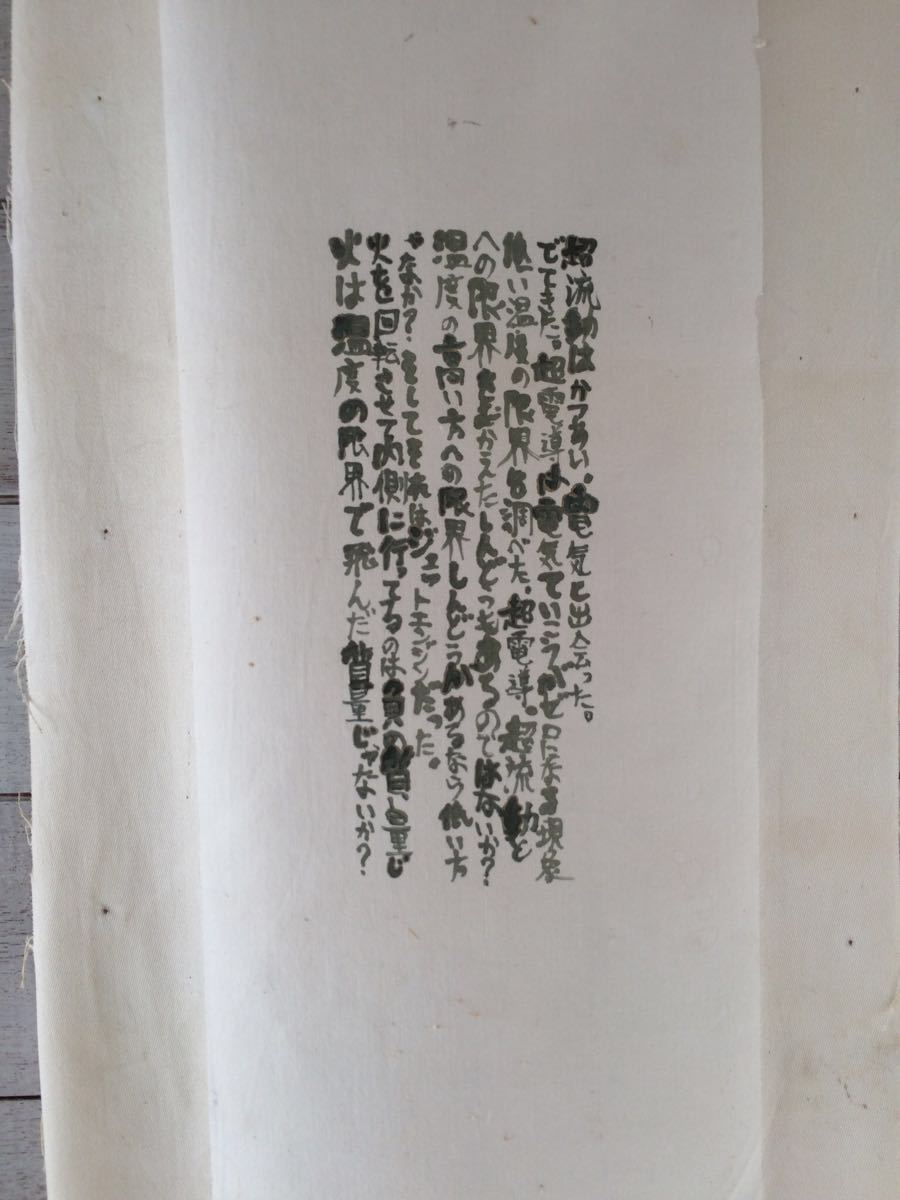 火は温度の限界で飛んだ質量じゃないか?
火を回転させて内側に行ってるのは負の質量じ
ゃなか?そしてそれはジェットエンジンだった。
温度の高い方への限界しんどうがあるなら低い方
への限界をむかえたしんどうもあるのではないか?
低い温度の限界を調べた、超電導。超流動と
でてきた。超電導は電気ていこうがゼロになる現象
超流動はかつあい、電気と出会った。